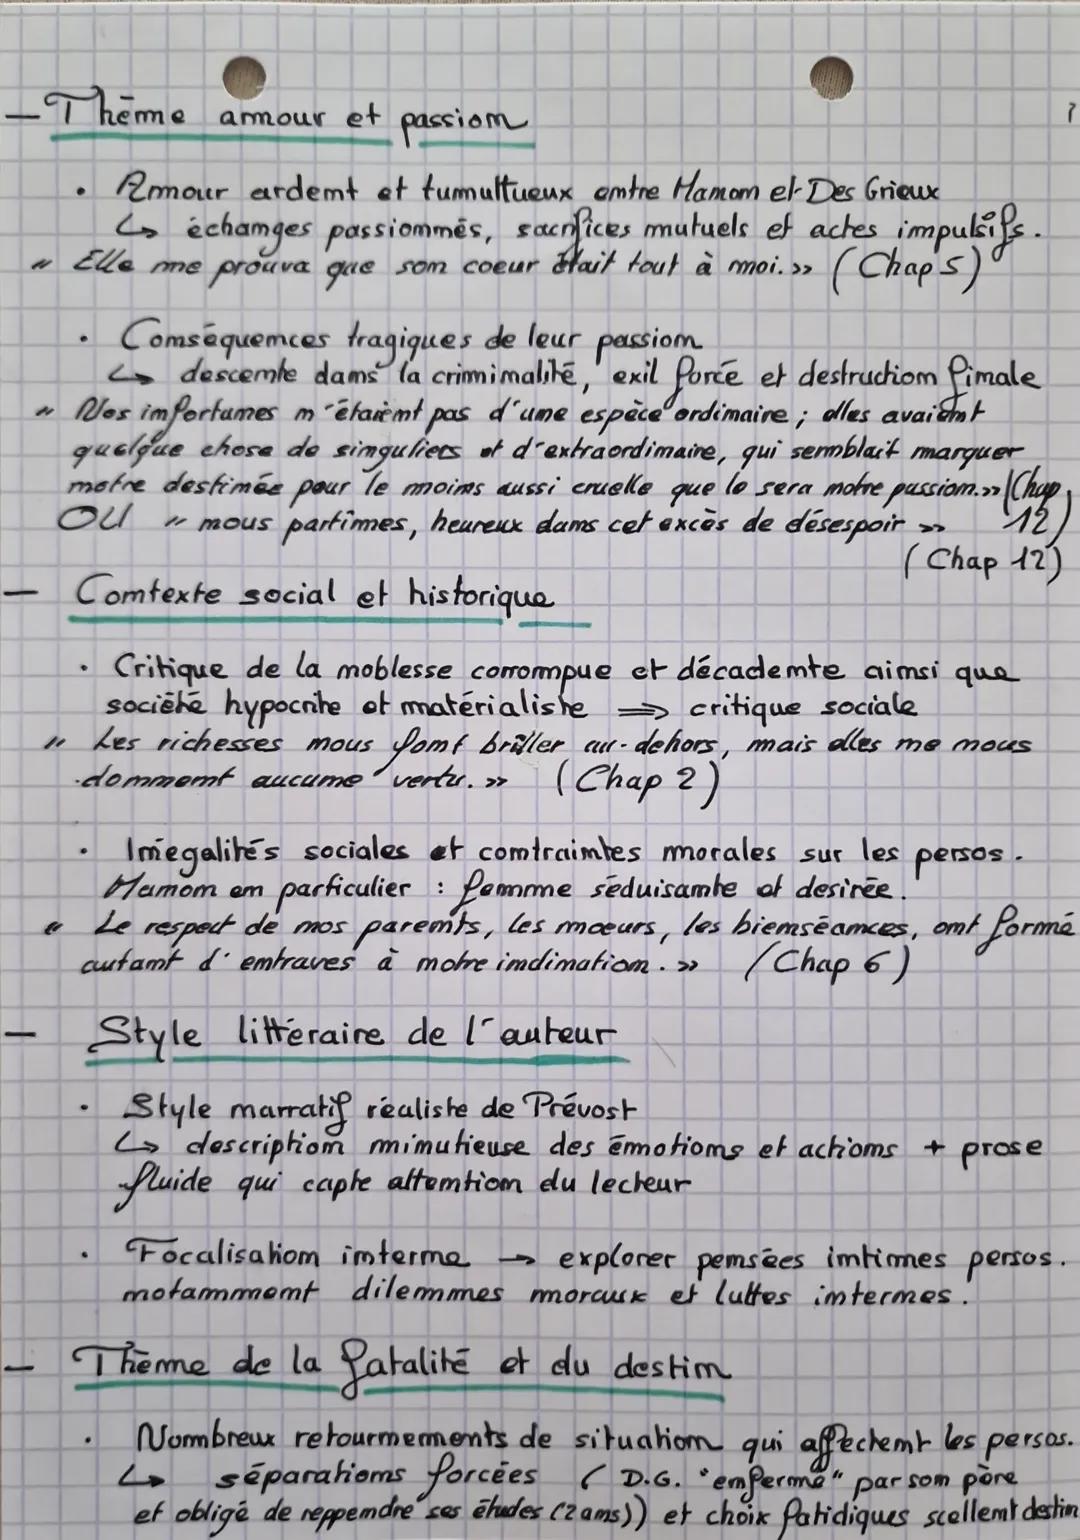 — Thème amour et passion
• Amour ardent et tumultueux entre Manon et Des Grieux
↳ échanges passionnés, sacrifices mutuels et actes impulsifs.
« Elle me prouva que son coeur était tout à moi. » (Chap 5)
• Conséquences tragiques de leur passion
↳ descente dans la criminalité, exil forcé et destruction finale
« Nos infortunes n'étaient pas d'une espèce ordinaire ; elles avaient
quelque chose de singuliers et d'extraordinaire, qui semblait marquer
notre destinée pour le moins aussi cruelle que le sera notre passion. » (Chap
12)
OU « nous partîmes, heureux dans cet excès de désespoir »
(Chap 12)
— Contexte social et historique
• Critique de la noblesse corrompue et décadente ainsi que
société hypocrite et matérialiste ⇒ critique sociale
« Les richesses nous font briller au-dehors, mais elles ne nous
donnent aucune vertu. » (Chap 2)
• Inégalités sociales et contraintes morales sur les persos.
Manon en particulier : femme séduisante et desirée.
« Le respect de nos parents, les moeurs, les bienséances, ont formé
autant d'entraves à notre inclination. » (Chap 6)
— Style littéraire de l'auteur
• Style narratif réaliste de Prévost
↳ description minutieuse des émotions et actions + prose
fluide qui capte attention du lecteur
• Focalisation interne → explorer pensées intimes persos.
notamment dilemmes moraux et luttes internes.
— Thème de la fatalité et du destin
• Nombreux retournements de situation qui affectent les persos.
↳ séparations forcées (D.G. "enfermé" par son père
et obligé de reppendre ses études (2 ans)) et choix fatidiques scellent destin